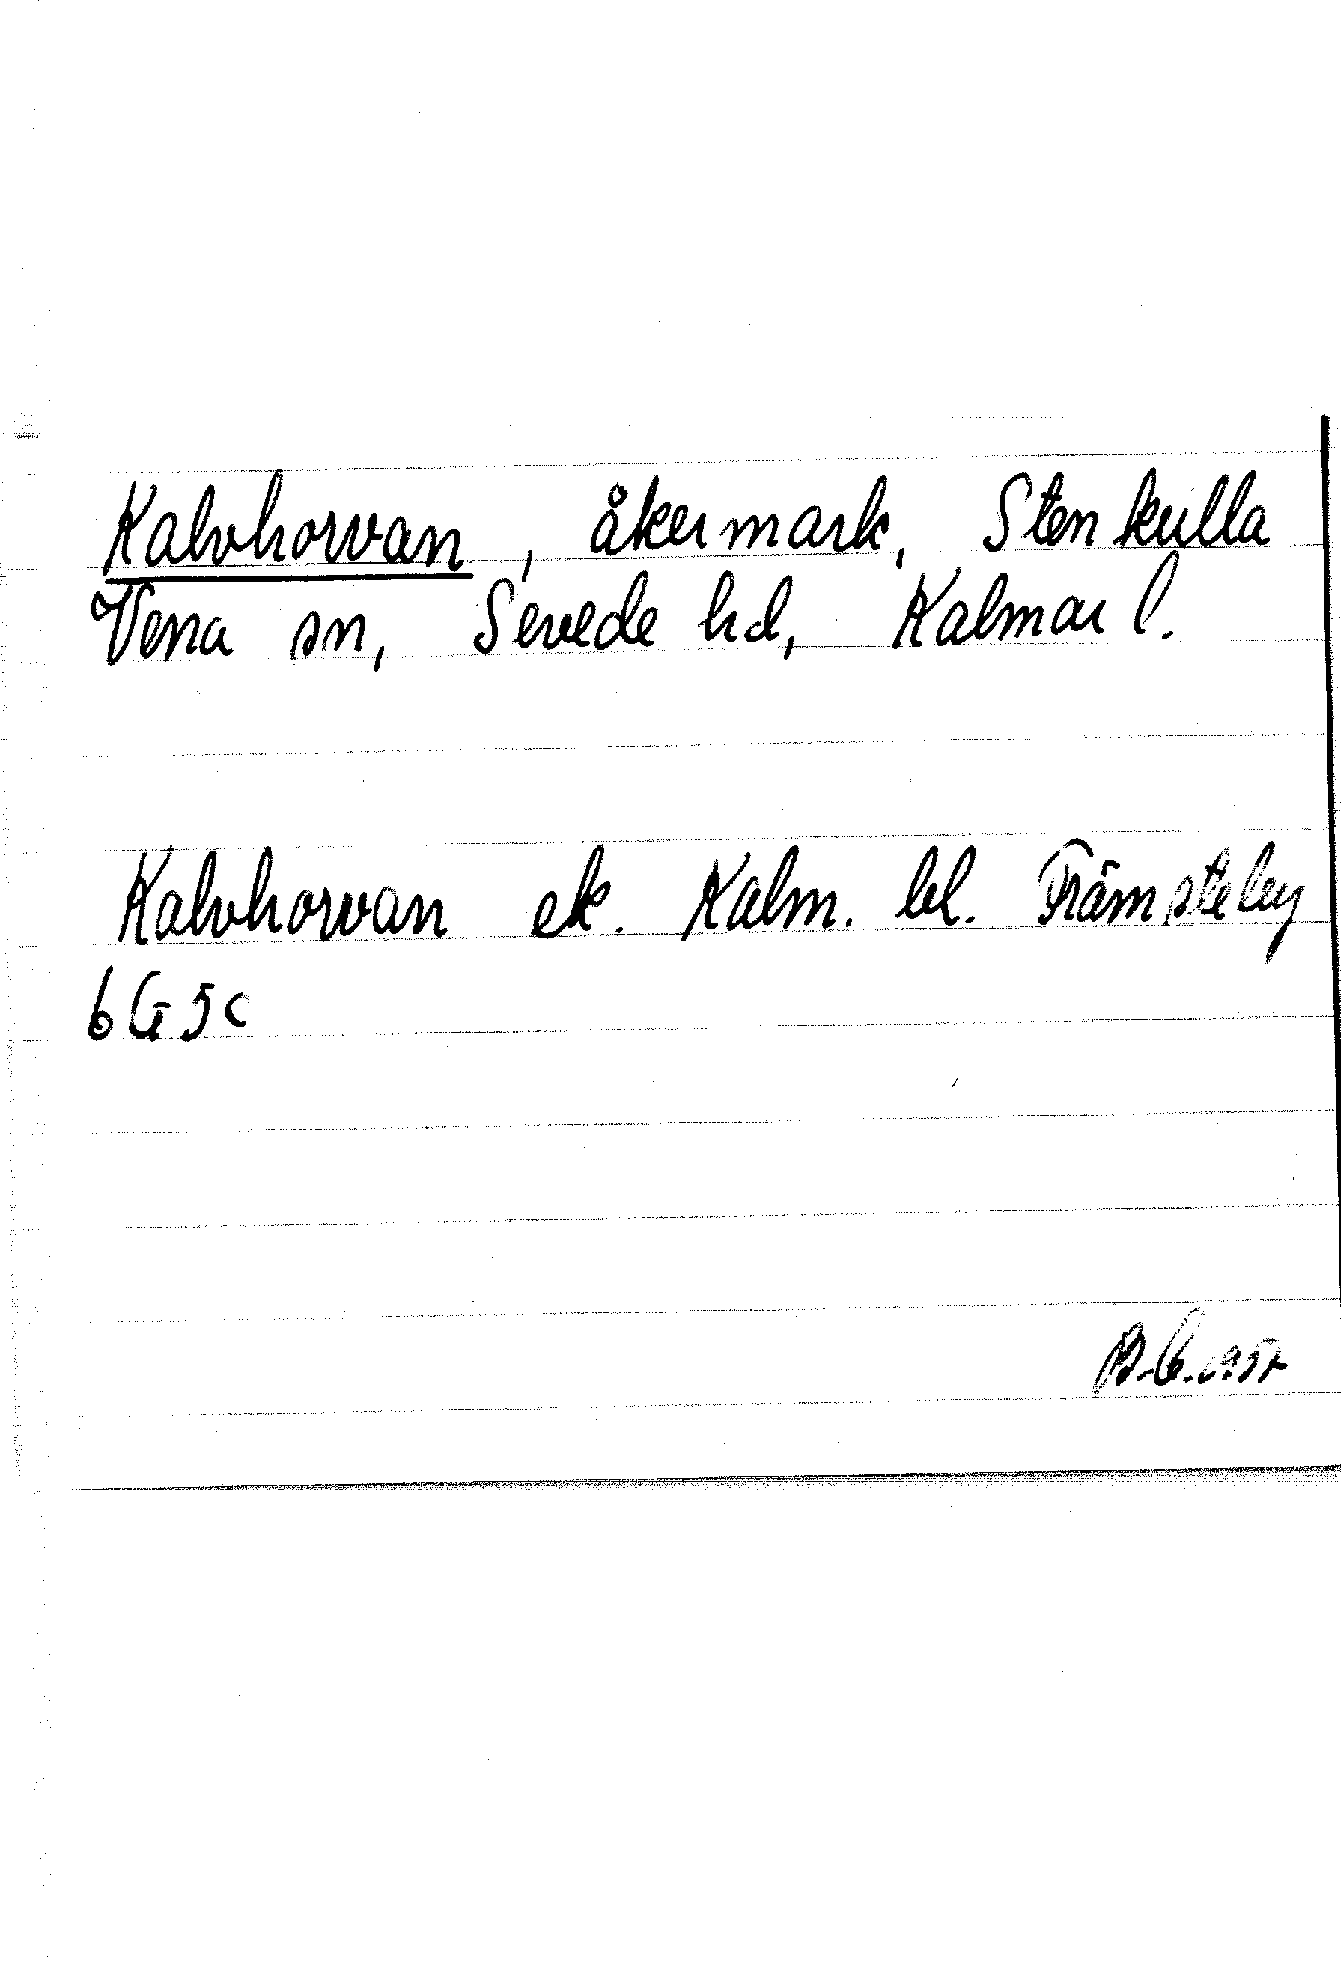 Kalvhorvan, åkermark, Stenkulla
Vena sn, Sevede hd, Kalmar l.
Kalvhorvan ek. Kalm. bl. Främsteby
6G5c
B.G. 1957